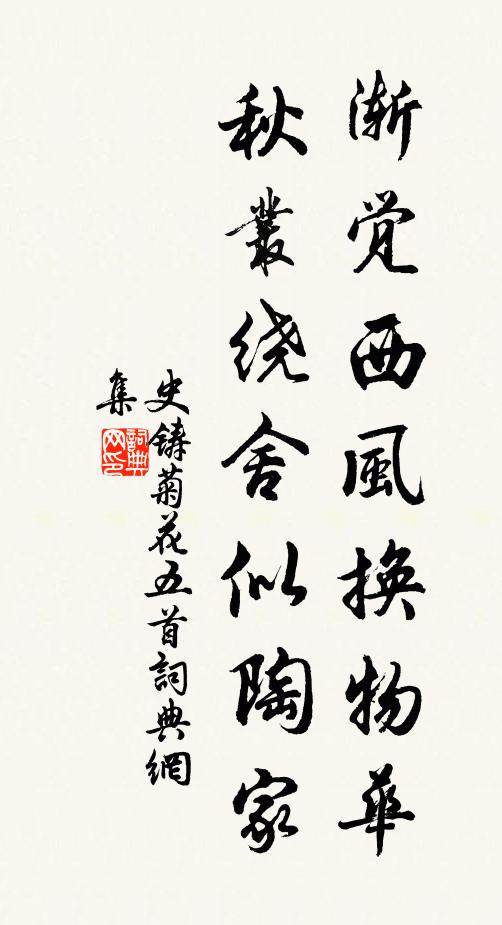 渐觉西風换物華
秋叢绕舍似陶家
史鑄菊花五首詞典網
集
詞典网印